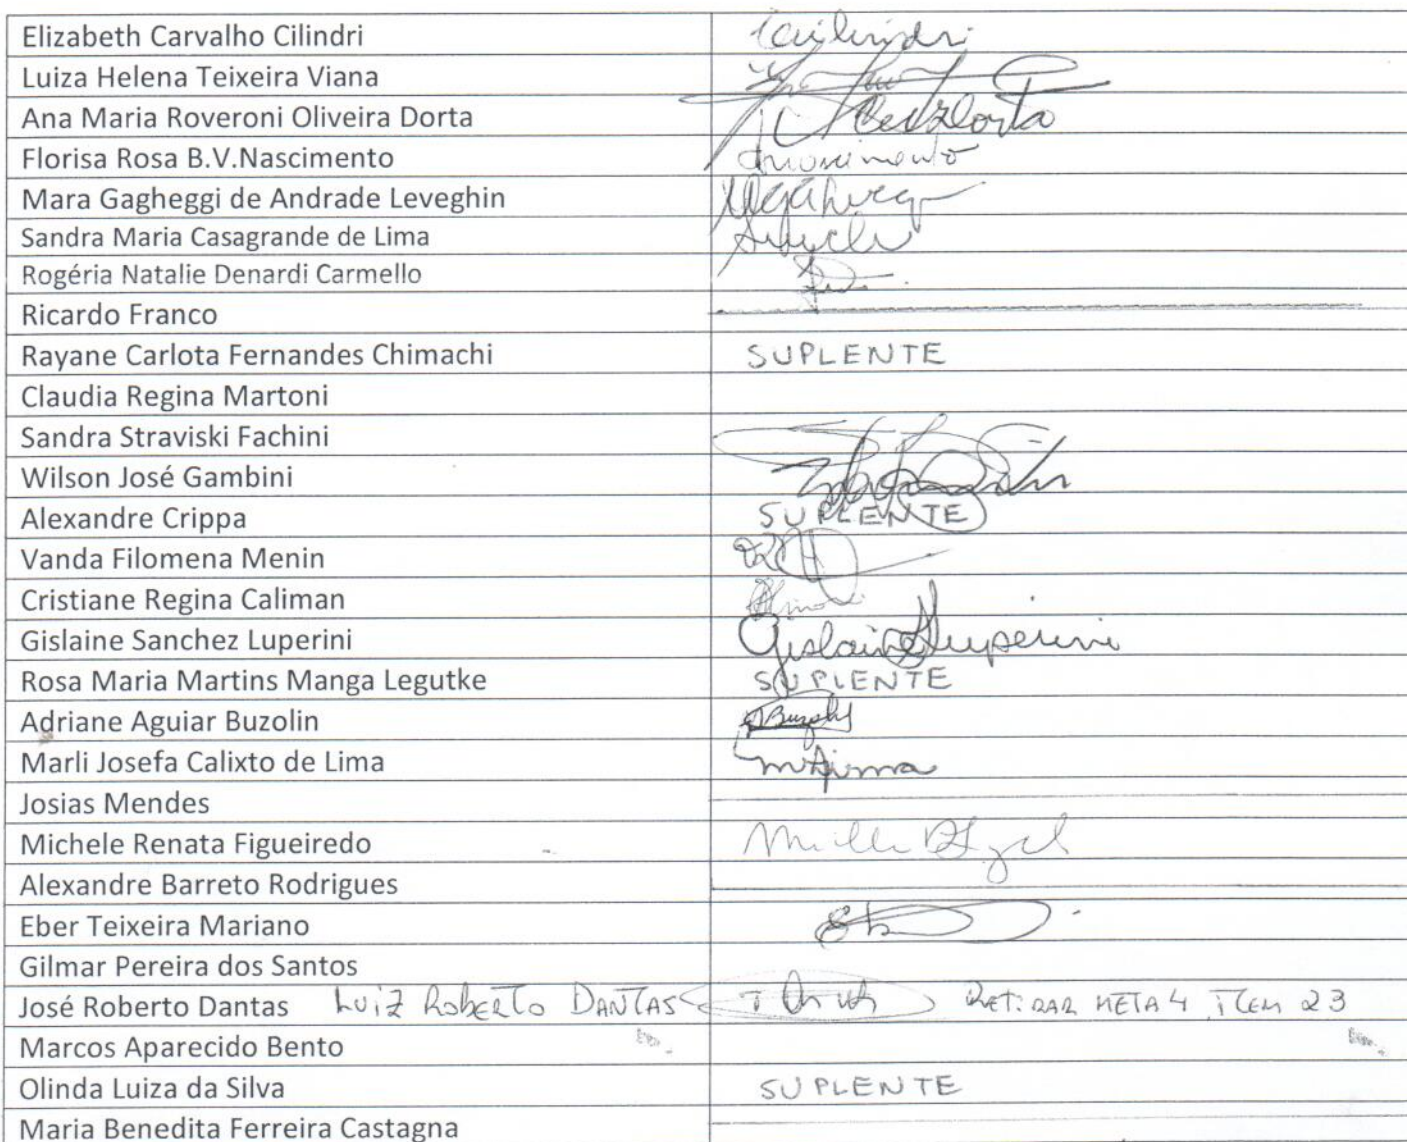 Elizabeth Carvalho Cilindri
Luiza Helena Teixeira Viana
Ana Maria Roveroni Oliveira Dorta
Florisa Rosa B.V.Nascimento
Mara Gagheggi de Andrade Leveghin
Sandra Maria Casagrande de Lima
Rogéria Natalie Denardi Carmello
Ricardo Franco
Rayane Carlota Fernandes Chimachi SUPLENTE
Claudia Regina Martoni
Sandra Straviski Fachini
Wilson José Gambini
Alexandre Crippa SUPLENTE
Vanda Filomena Menin
Cristiane Regina Caliman
Gislaine Sanchez Luperini Gislaine Luperini
Rosa Maria Martins Manga Legutke SUPLENTE
Adriane Aguiar Buzolin
Marli Josefa Calixto de Lima
Josias Mendes
Michele Renata Figueiredo
Alexandre Barreto Rodrigues
Eber Teixeira Mariano
Gilmar Pereira dos Santos
José Roberto Dantas LUIZ ROBERTO DANTAS RETIRAR META 4 ITEM 23
Marcos Aparecido Bento
Olinda Luiza da Silva SUPLENTE
Maria Benedita Ferreira Castagna